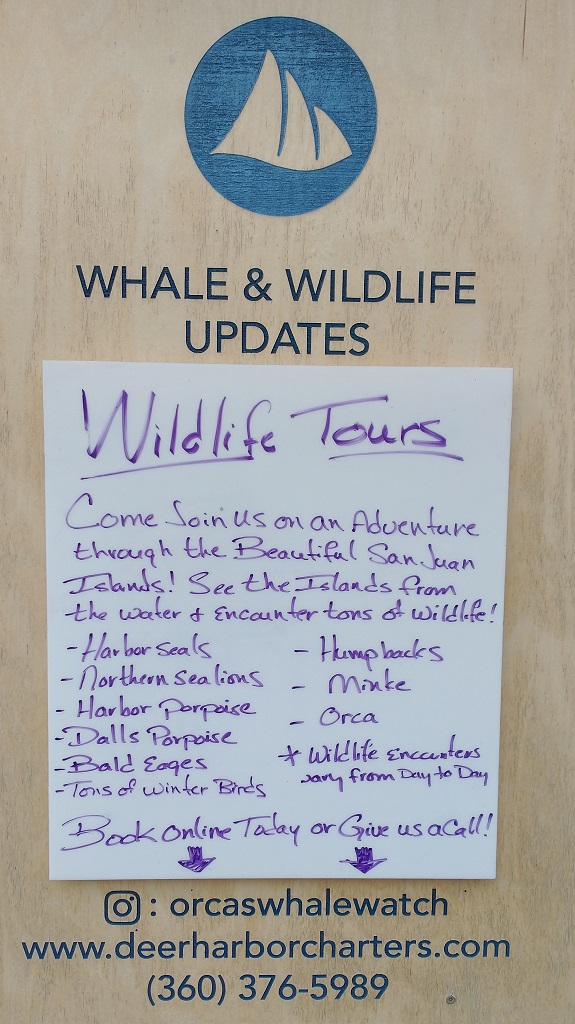 WHALE & WILDLIFE
UPDATES
Wildlife Tours
Come Join Us on an Adventure
through the Beautiful San Juan
Islands! See the Islands from
the water & Encounter tons of Wildlife!
- Harbor Seals
- Northern Sealions
- Harbor Porpoise
- Dalls Porpoise
- Bald Eages
- Tons of Winter Birds
- Humpbacks
- Minke
- Orca
* Wildlife Encounters
vary from Day to Day
Book Online Today or Give us a Call!
: orcaswhalewatch
www.deerharborcharters.com
(360) 376-5989